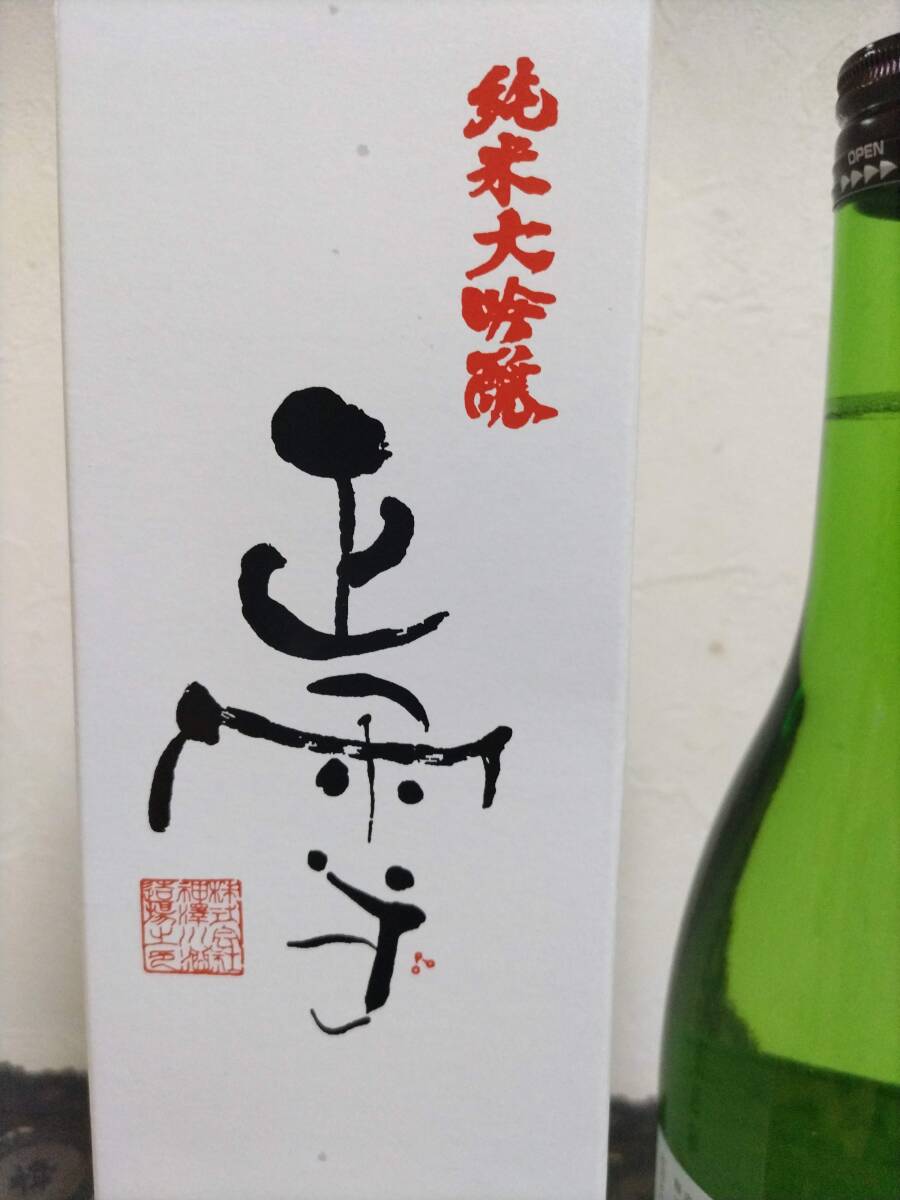 純米大吟醸
正雪
株式会社
神澤川酒
造場之印
OPEN